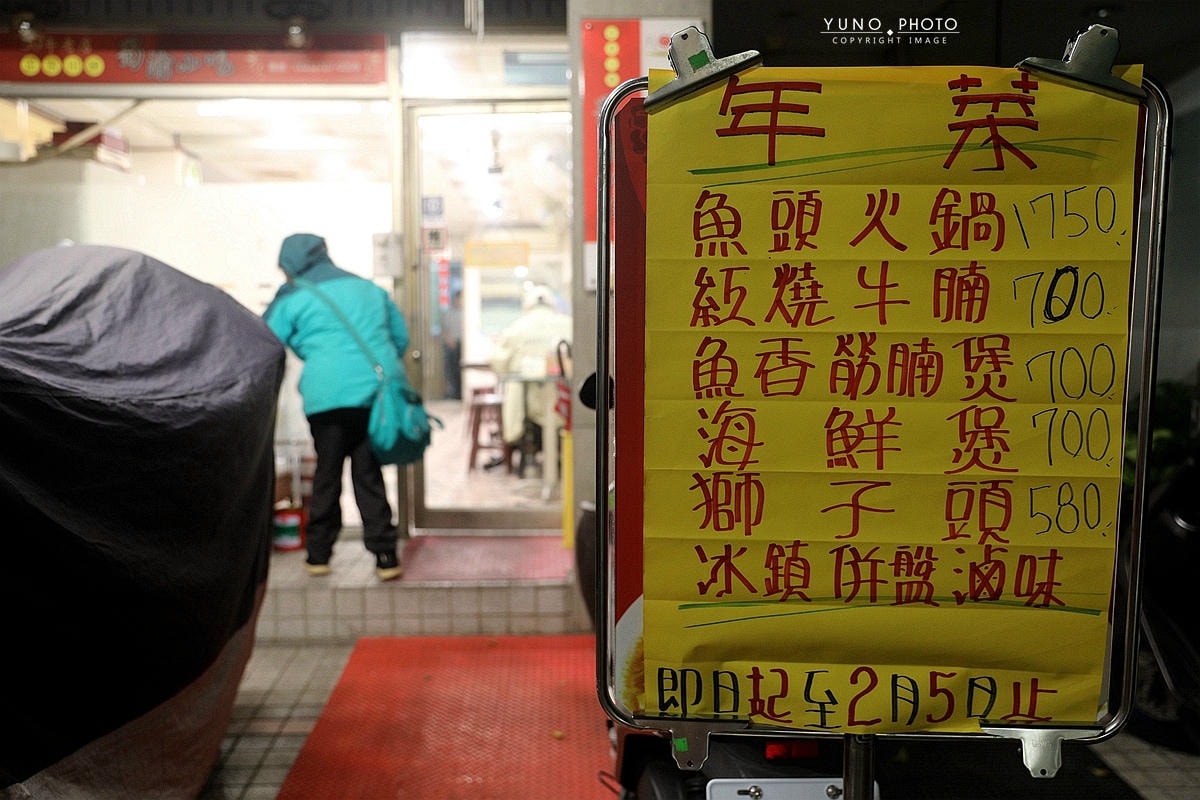 YUNO PHOTO
COPYRIGHT IMAGE
年菜
魚頭火鍋 1750.
紅燒牛腩 700.
魚香筋腩煲 700
海鮮煲 700.
獅子頭 580.
冰鎮併盤滷味
即日起至2月5日止